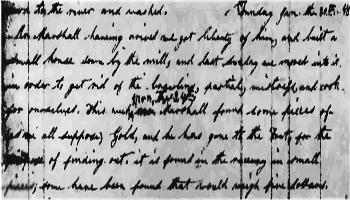 down to the river and washed. Sunday Jan. the 30th - 48
Marshall having arived we got liberty of him, and built a
small house down by the mill, and last Sunday we moved into it
in order to get rid of the brawling, partial, mistress, and cook
for ourselves. This week Mon. the 24th Marshall found some pieces of
we all suppose) Gold, and he has gone to the Fort, for the
of finding out. it is found in the raceway in small
pieces; some have been found that would weigh five dollars.